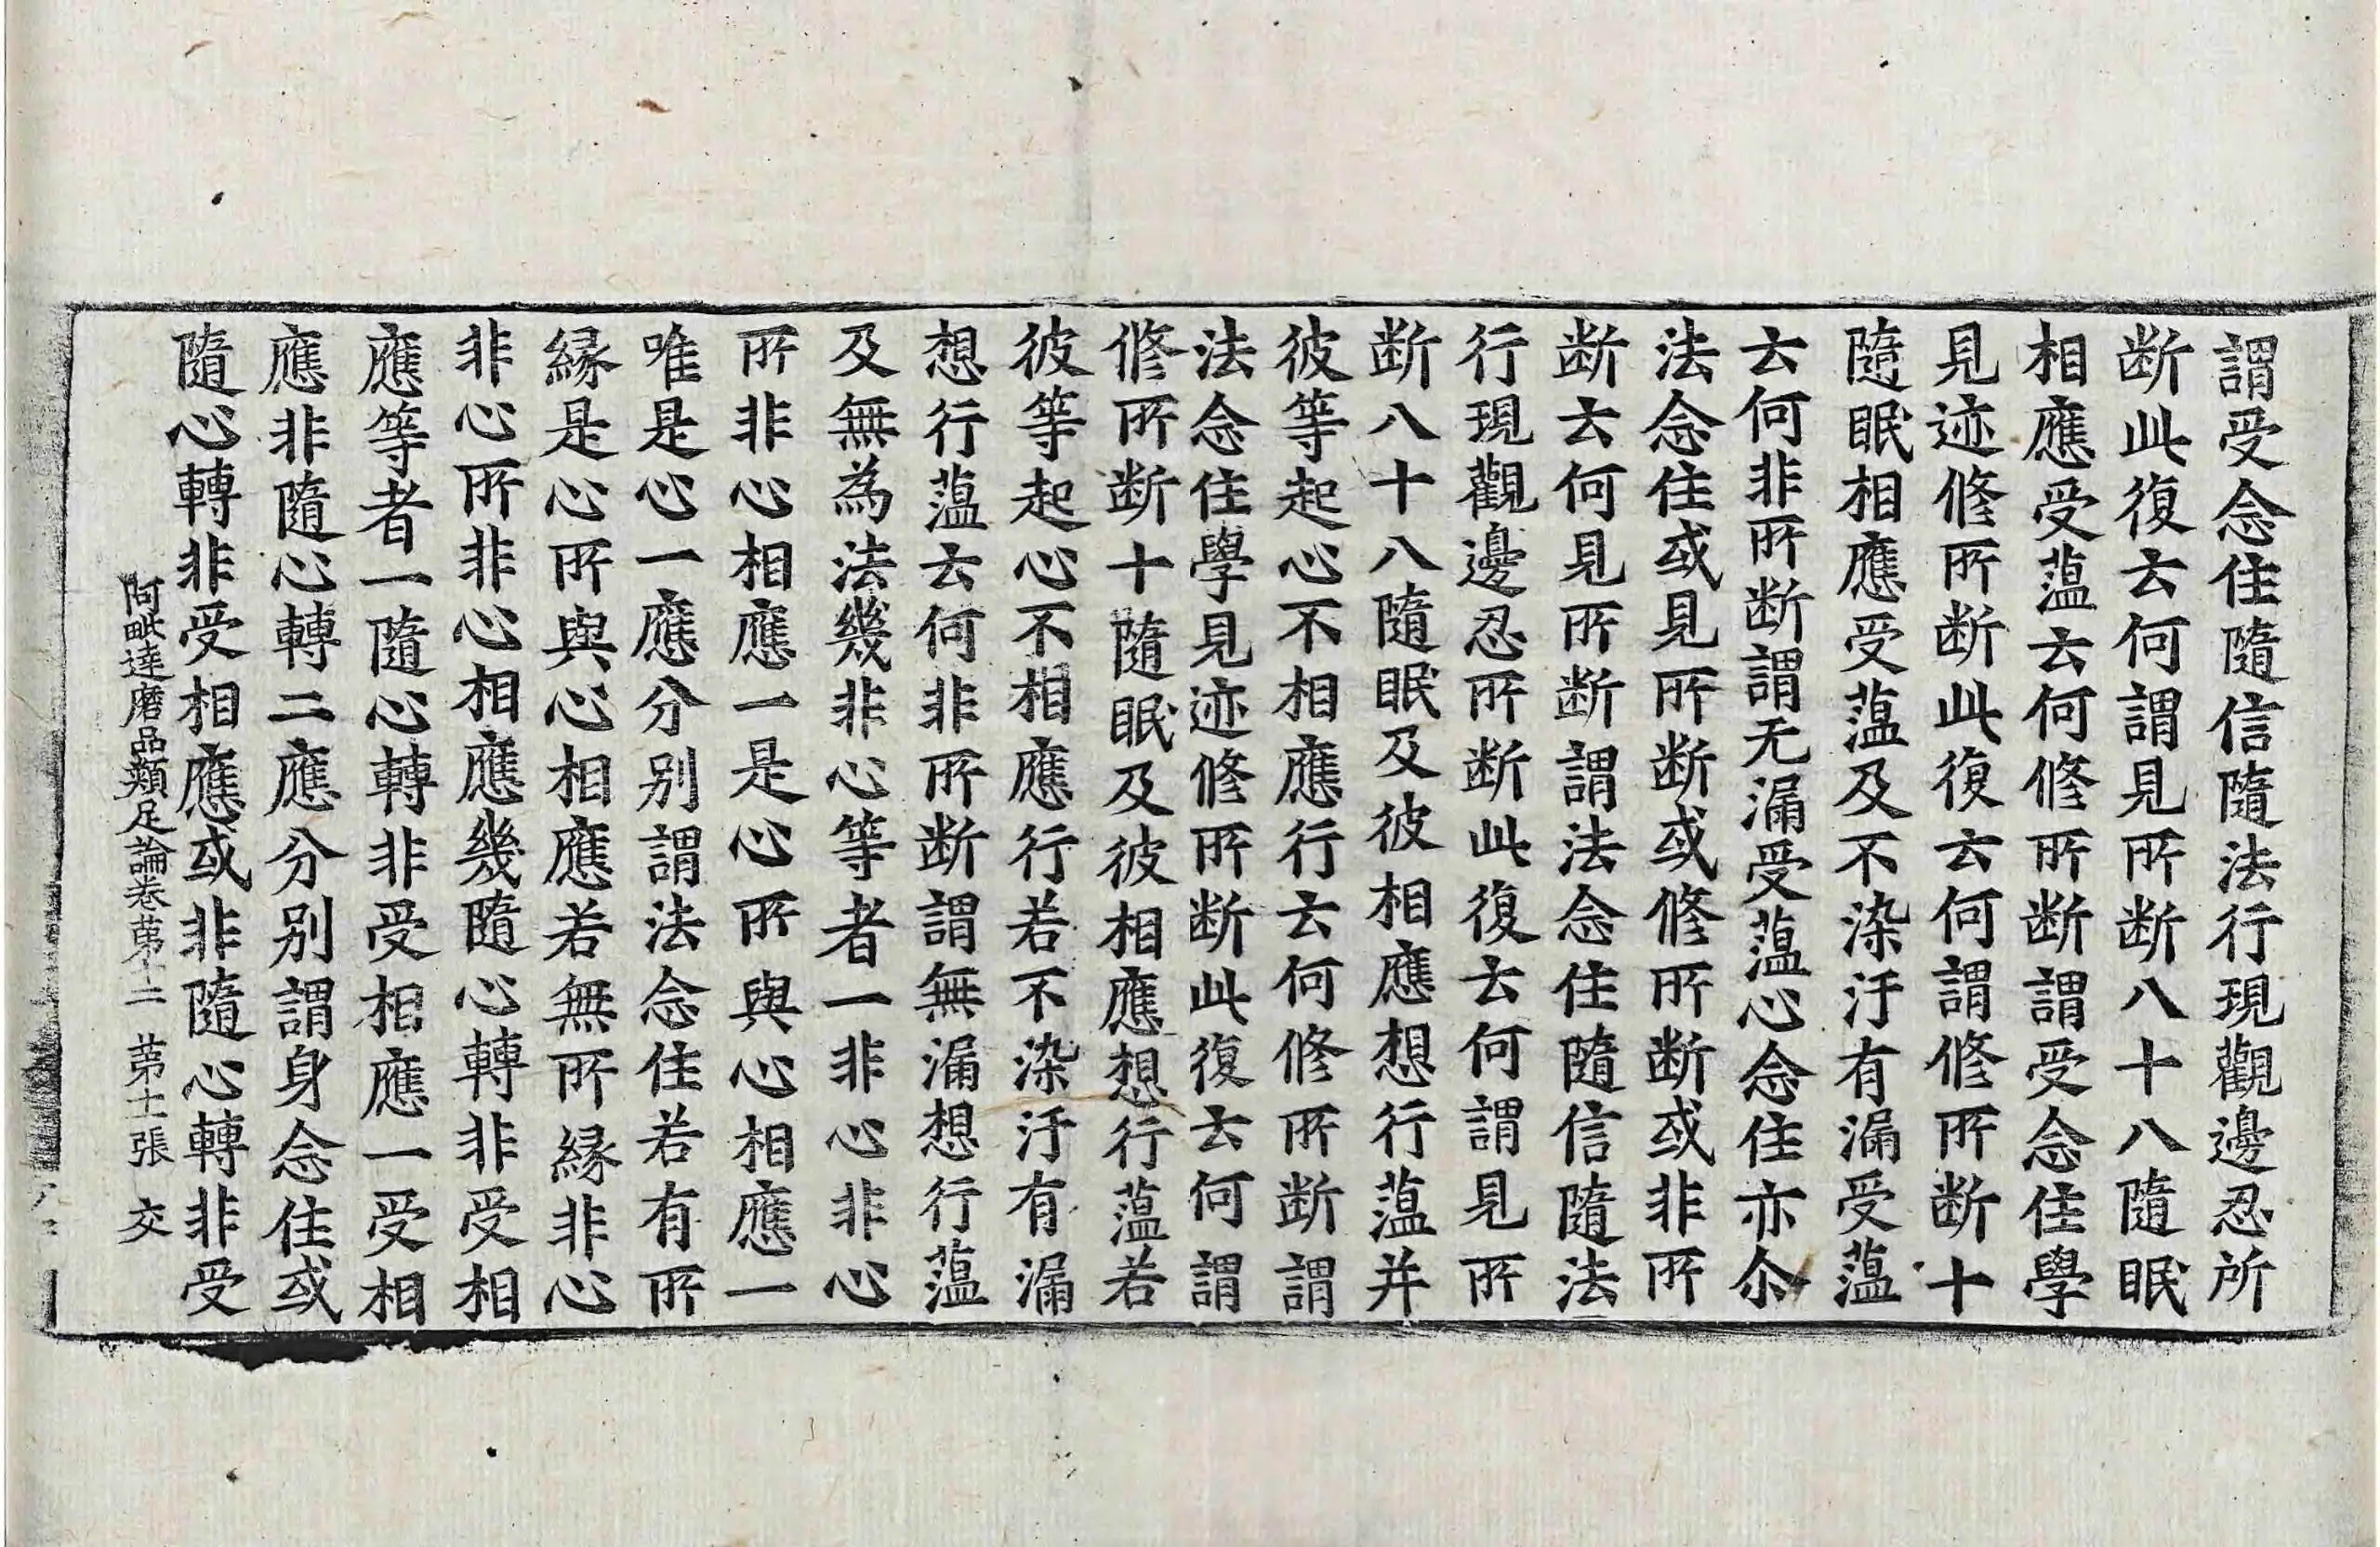 謂受念住隨信隨法行現觀邊忍所
断此復去何謂見所断八十八隨眠
相應受薀去何修所断謂受念住學
見迹修所断此復去何謂修所断十
隨眠相應受薀及不染汙有漏受薀
去何非所断謂无漏受薀心念住亦尒
法念住或見所断或修所断或非所
断去何見所断謂法念住隨信隨法
行現觀邊忍所断此復去何謂見所
断八十八隨眠及彼相應想行薀并
彼等起心不相應行去何修所断謂
法念住學見迹修所断此復去何謂
修所断十隨眠及彼相應想行薀若
彼等起心不相應行若不染汙有漏
想行薀去何非所断謂無漏想行薀
及無為法幾非心等者一非心非心
所非心相應一是心所與心相應一
唯是心一應分別謂法念住若有所
緣是心所與心相應若無所緣非心
非心所非心相應幾隨心轉非受相
應等者一隨心轉非受相應一受相
應非隨心轉二應分別謂身念住或
隨心轉非受相應或非隨心轉非受
阿毗達磨品類足論卷苐十二 苐十一張 交